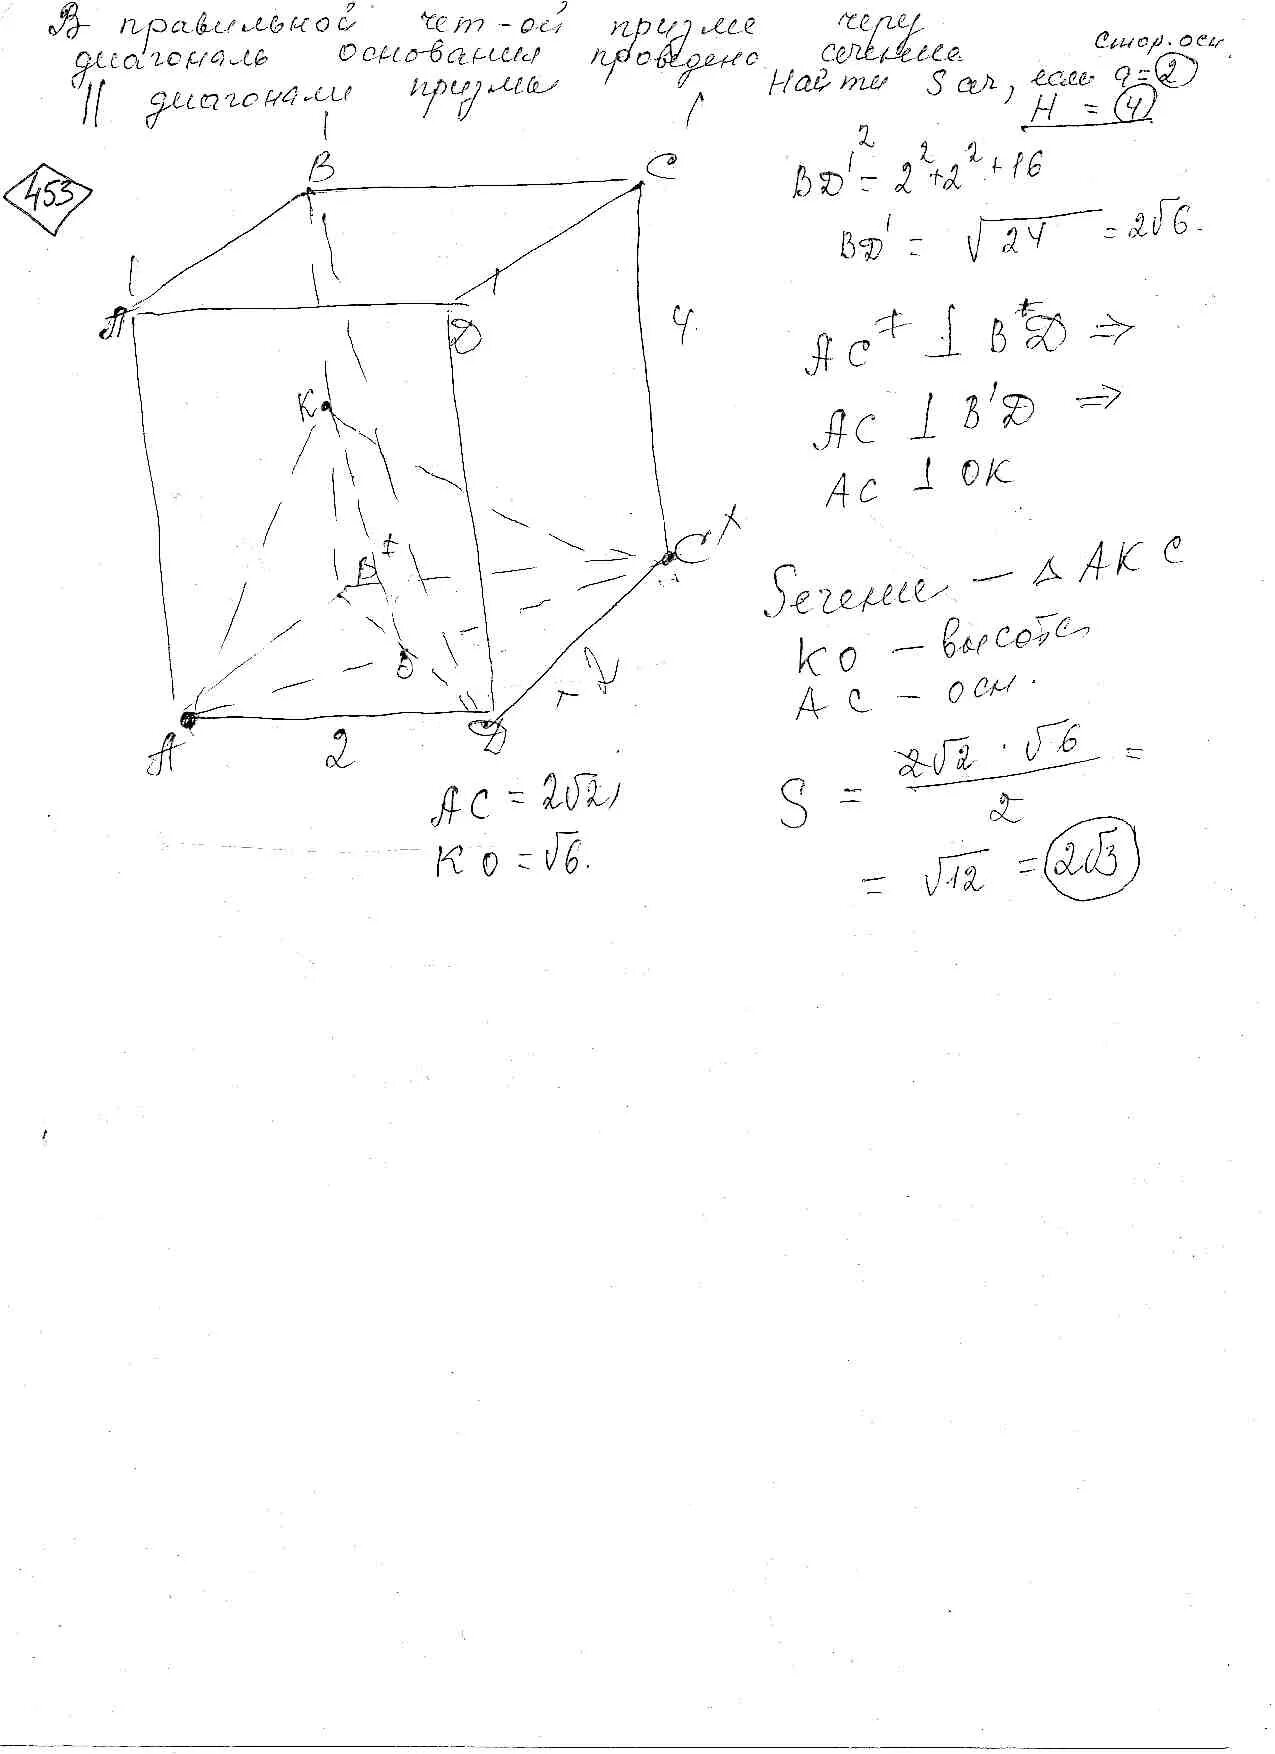 В правильной чет-ой призме через
диагональ основания проведено сечение
|| диагонали призмы. Найти S сеч, если a = 2
стор. осн
H = 4
453
B'
C'
A'
D'
4
K
B
C
O
A
D
2
2
AC = 2√2,
KO = √6.
BD'² = 2² + 2² + 16
BD' = √24 = 2√6.
AC ⊥ BD ⇒
AC ⊥ B'D ⇒
AC ⊥ OK
Sечение — △ AKC
KO — высота
AC — осн.
S = 2√2 · √6 / 2 =
= √12 = 2√3